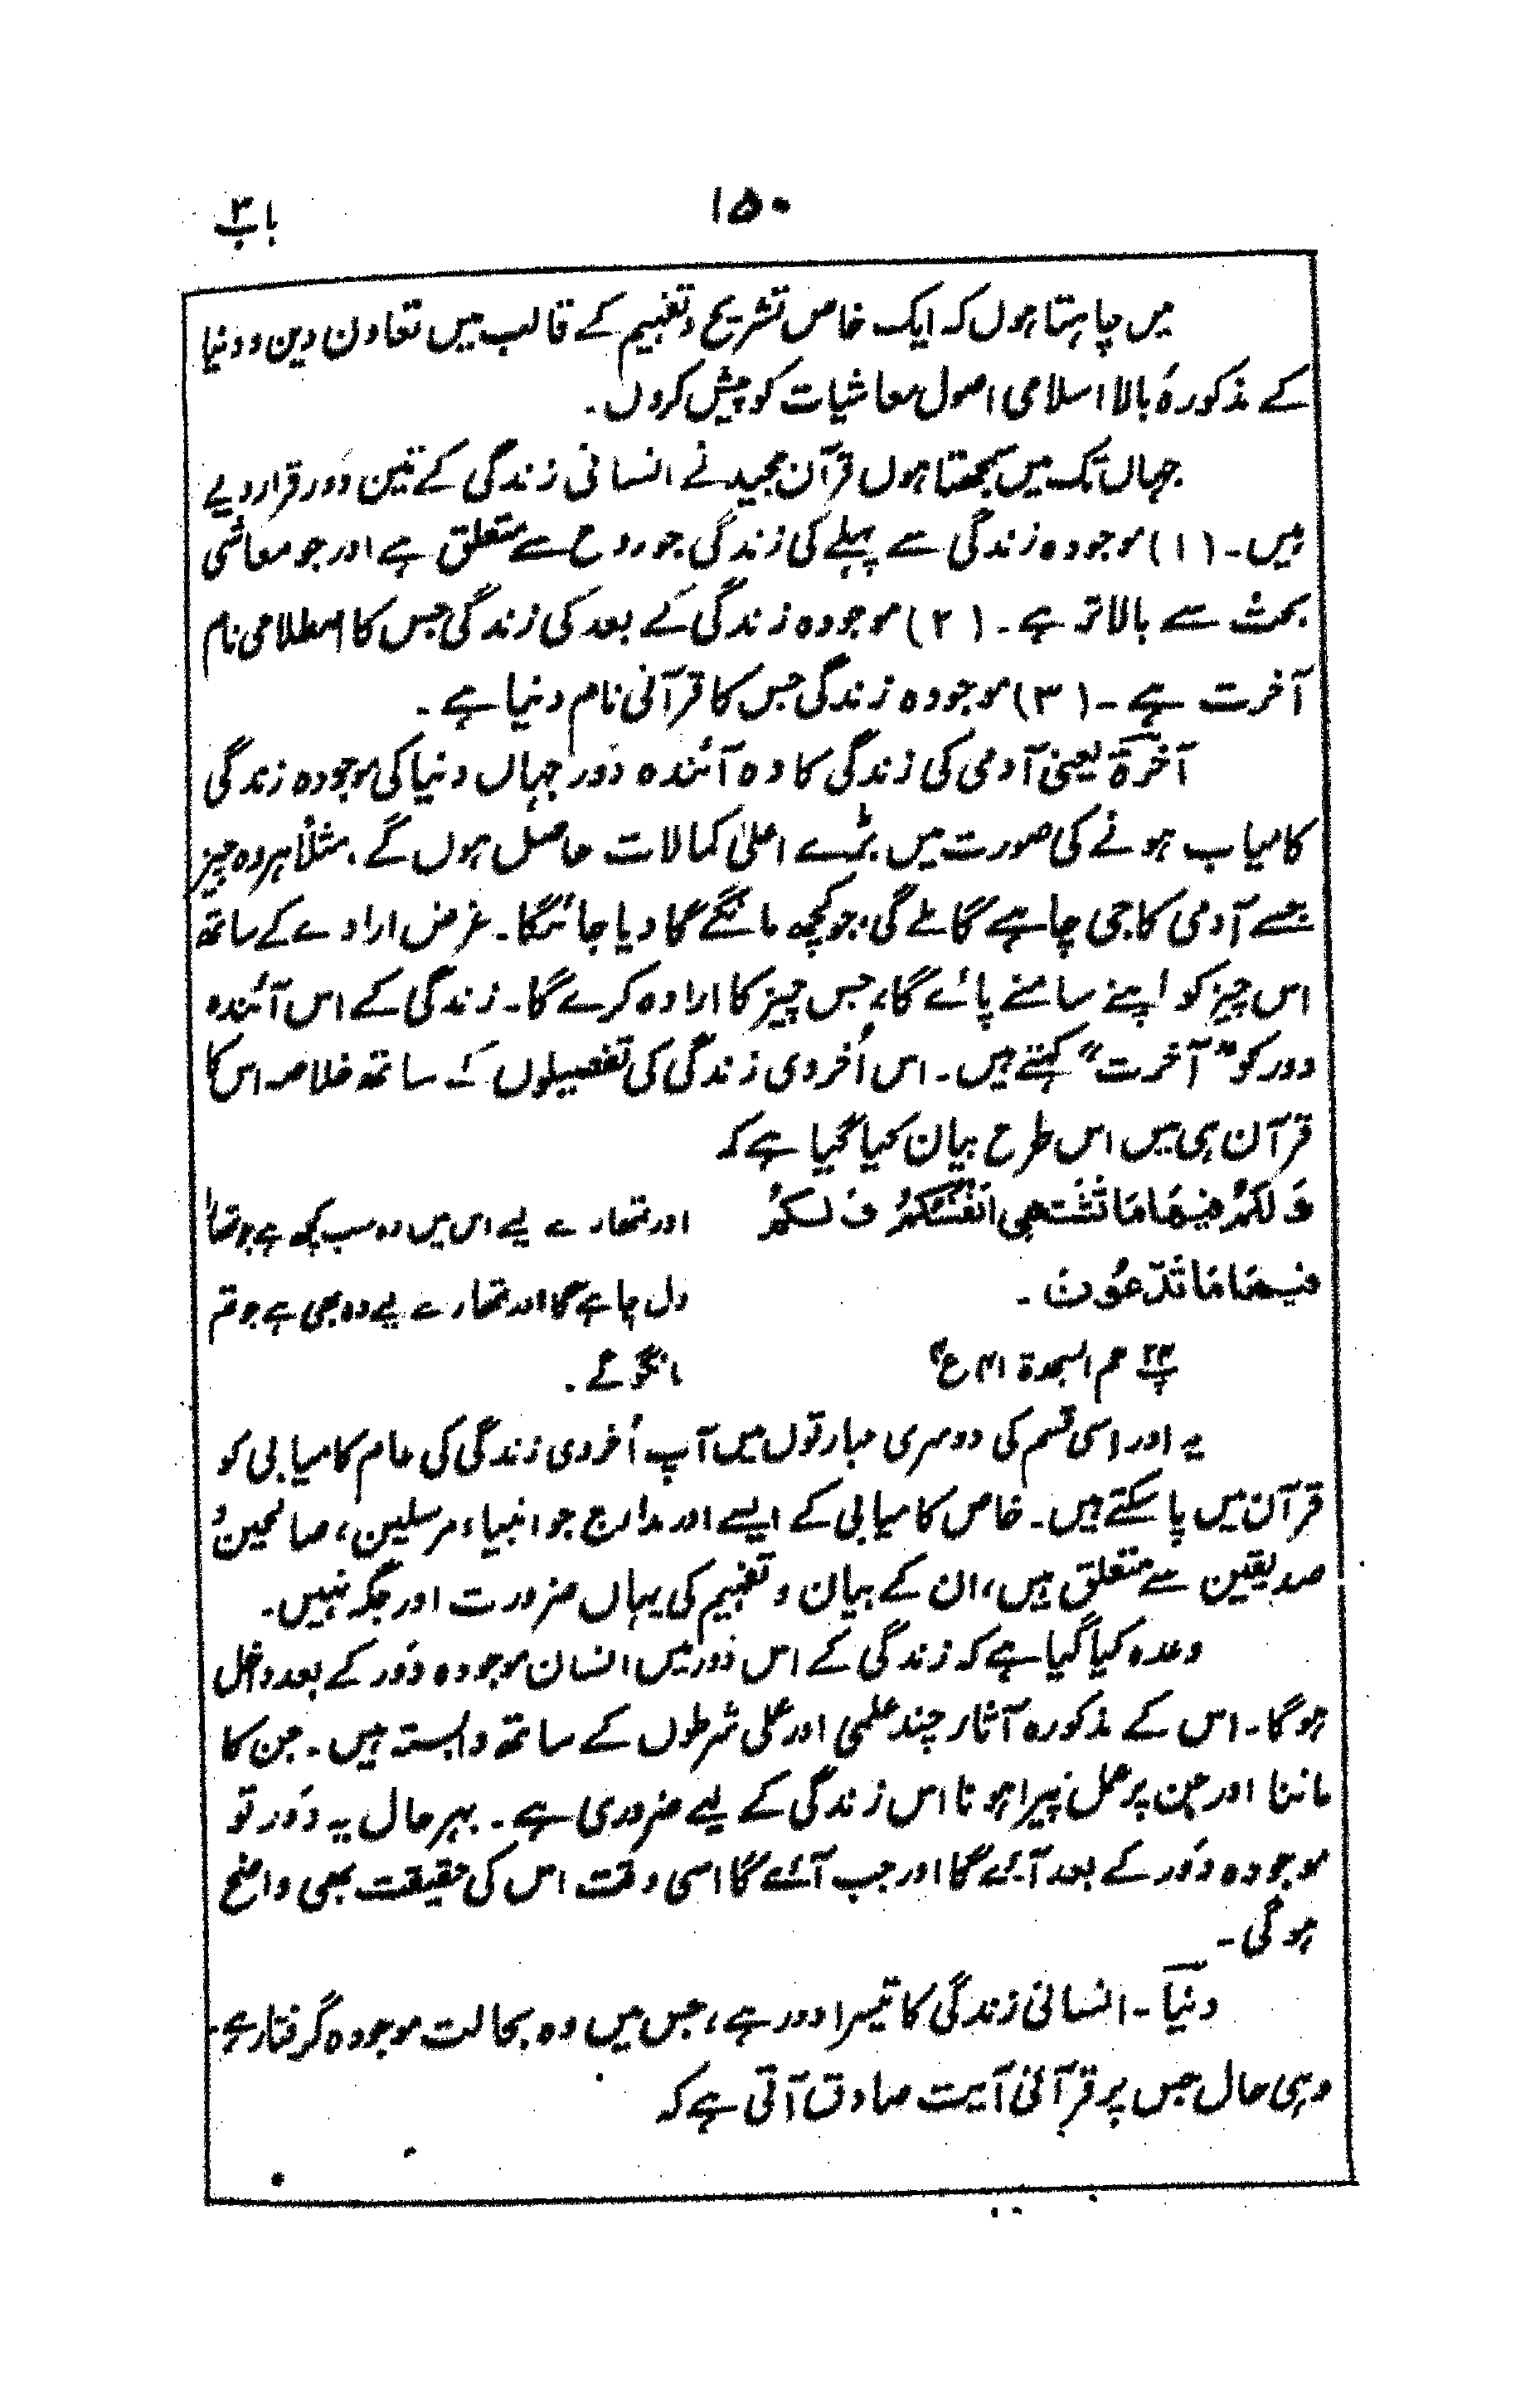 ۱۵۰
باب ۳
میں چاہتا ہوں کہ ایک خاص تشریح و تفہیم کے قالب میں تعاون دین و دنیا
کے مذکورۂ بالا اسلامی اصول معاشیات کو پیش کروں۔
جہاں تک میں سمجھتا ہوں قرآن مجید نے انسانی زندگی کے تین دَور قرار دیے
ہیں۔ (۱) موجودہ زندگی سے پہلے کی زندگی جو روح سے متعلق ہے اور جو معاشی
بحث سے بالاتر ہے۔ (۲) موجودہ زندگی کے بعد کی زندگی جس کا اصطلاحی نام
آخرت ہے۔ (۳) موجودہ زندگی جس کا قرآنی نام دنیا ہے۔
آخرۃ یعنی آدمی کی زندگی کا وہ آئندہ دَور جہاں دنیا کی موجودہ زندگی
کامیاب ہونے کی صورت میں بڑے اعلیٰ کمالات حاصل ہوں گے، مثلاً ہر وہ چیز
جسے آدمی کا جی چاہے گا ملے گی، جو کچھ مانگے گا دیا جائیگا۔ غرض ارادے کے ساتھ
اس چیز کو اپنے سامنے پائے گا، جس چیز کا ارادہ کرے گا۔ زندگی کے اس آئندہ
دور کو "آخرت" کہتے ہیں۔ اس اُخروی زندگی کی تفصیلوں کے ساتھ خلاصہ اس کا
قرآن ہی میں اس طرح بیان کیا گیا ہے کہ
وَلَكُمْ فِيهَا مَا تَشْتَهِي اَنْفُسُكُمْ وَلَكُمْ اور تمھارے لیے اس میں وہ سب کچھ ہے جو تمھا
فِيهَا مَا تَدَّعُوْنَ۔ دل چاہے گا اور تمھارے لیے وہ بھی ہے جو تم
پ۲۴ حم السجدۃ ۴۱ ع۴ مانگو گے۔
یہ اور اسی قسم کی دوسری عبارتوں میں آپ اُخروی زندگی کی عام کامیابی کو
قرآن میں پا سکتے ہیں۔ خاص کامیابی کے ایسے اور مدارج جو انبیاء، مرسلین، صالحین و
صدیقین سے متعلق ہیں، ان کے بیان و تفہیم کی یہاں ضرورت اور جگہ نہیں۔
وعدہ کیا گیا ہے کہ زندگی کے اس دَور میں انسان موجودہ دَور کے بعد داخل
ہوگا۔ اس کے مذکورہ آثار چند علمی اور عملی شرطوں کے ساتھ وابستہ ہیں۔ جن کا
ماننا اور جن پر عمل پیرا ہونا اس زندگی کے لیے ضروری ہے۔ بہر حال یہ دَور تو
موجودہ دَور کے بعد آئے گا اور جب آئے گا اسی وقت اس کی حقیقت بھی واضح
ہوگی۔
دنیا۔ انسانی زندگی کا تیسرا دور ہے، جس میں وہ بحالت موجودہ گرفتار ہے۔
وہی حال جس پر قرآنی آیت صادق آتی ہے کہ